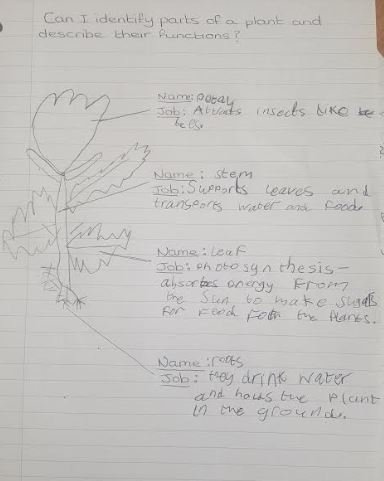 Can I identify parts of a plant and
describe their functions?
Name: petal
Job: Attracts insects like be
bees.
Name: stem
Job: Supports leaves and
transports water and food.
Name: leaf
Job: photosynthesis-
absorbes energy from
the sun to make sugars
for food for the Plants.
Name: roots
Job: they drink water
and holds the plant
in the ground.